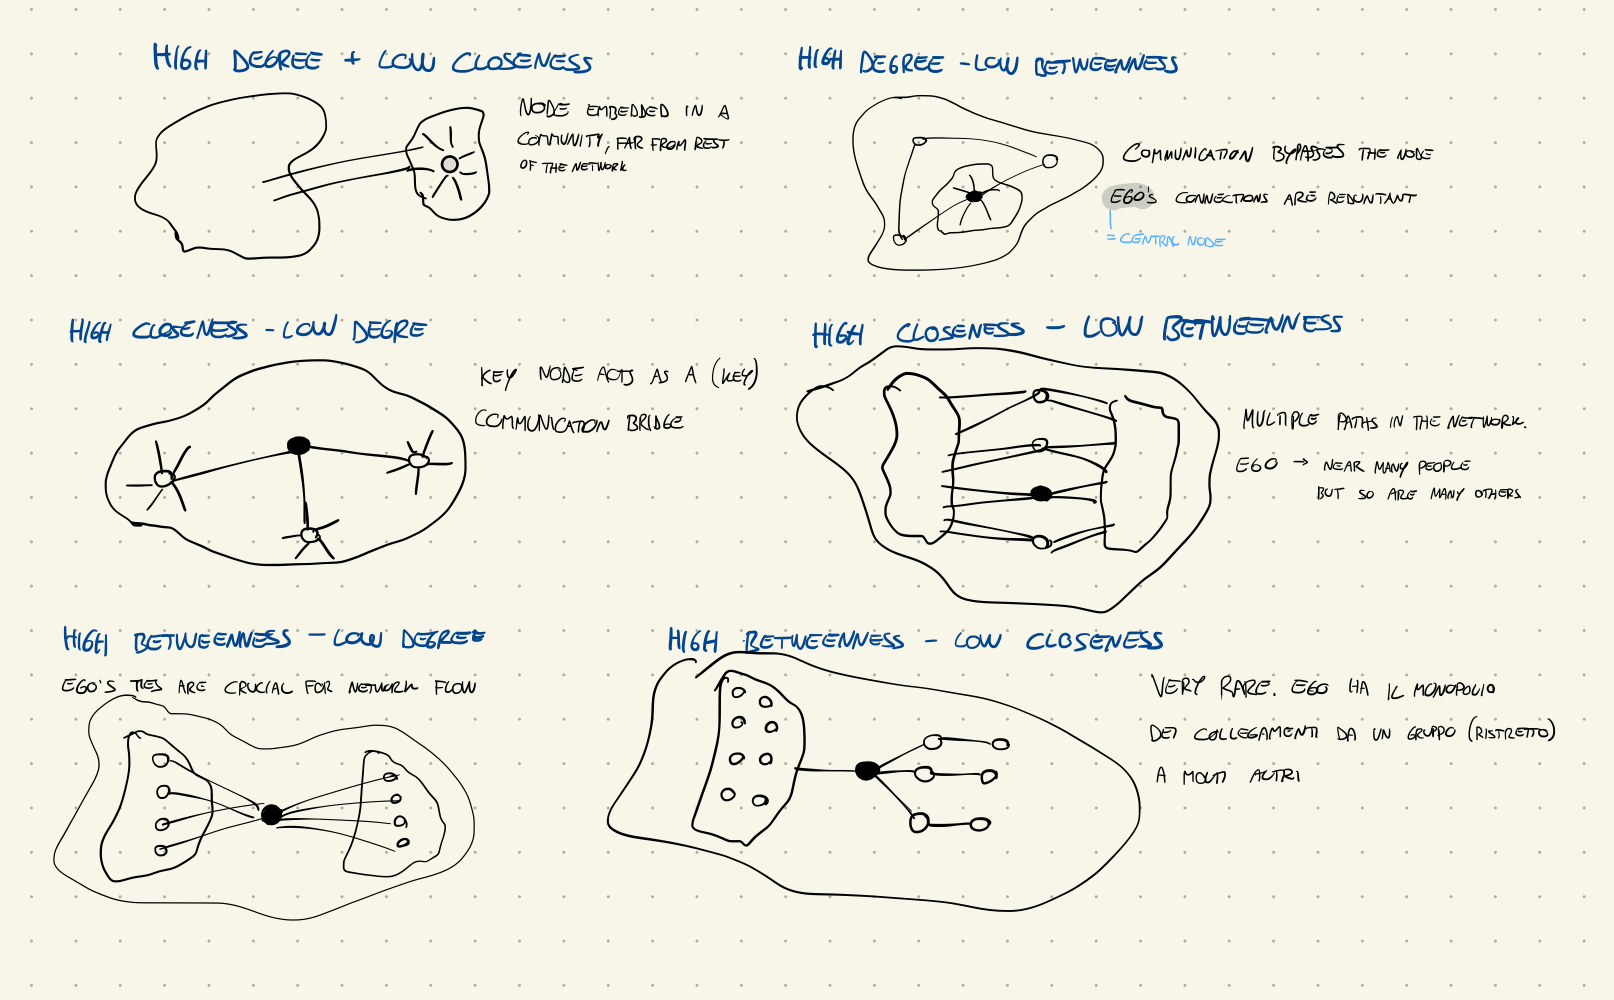 HIGH DEGREE + LOW CLOSENESS
NODE EMBEDDED IN A
COMMUNITY, FAR FROM REST
OF THE NETWORK
HIGH DEGREE - LOW BETWEENNESS
COMMUNICATION BYPASSES THE NODE
EGO'S CONNECTIONS ARE REDUNTANT
= CENTRAL NODE
HIGH CLOSENESS - LOW DEGRE
KEY NODE ACTS AS A (KEY)
COMMUNICATION BRIDGE
HIGH CLOSENESS - LOW BETWEENNESS
MULTIPLE PATHS IN THE NETWORK.
EGO → NEAR MANY PEOPLE
BUT SO ARE MANY OTHERS
HIGH BETWEENNESS - LOW DEGREE
EGO'S TIES ARE CRUCIAL FOR NETWORK FLOW
HIGH BETWEENNESS - LOW CLOSENESS
VERY RARE. EGO HA IL MONOPOLIO
DEI COLLEGAMENTI DA UN GRUPPO (RISTRETTO)
A MOLTI ALTRI